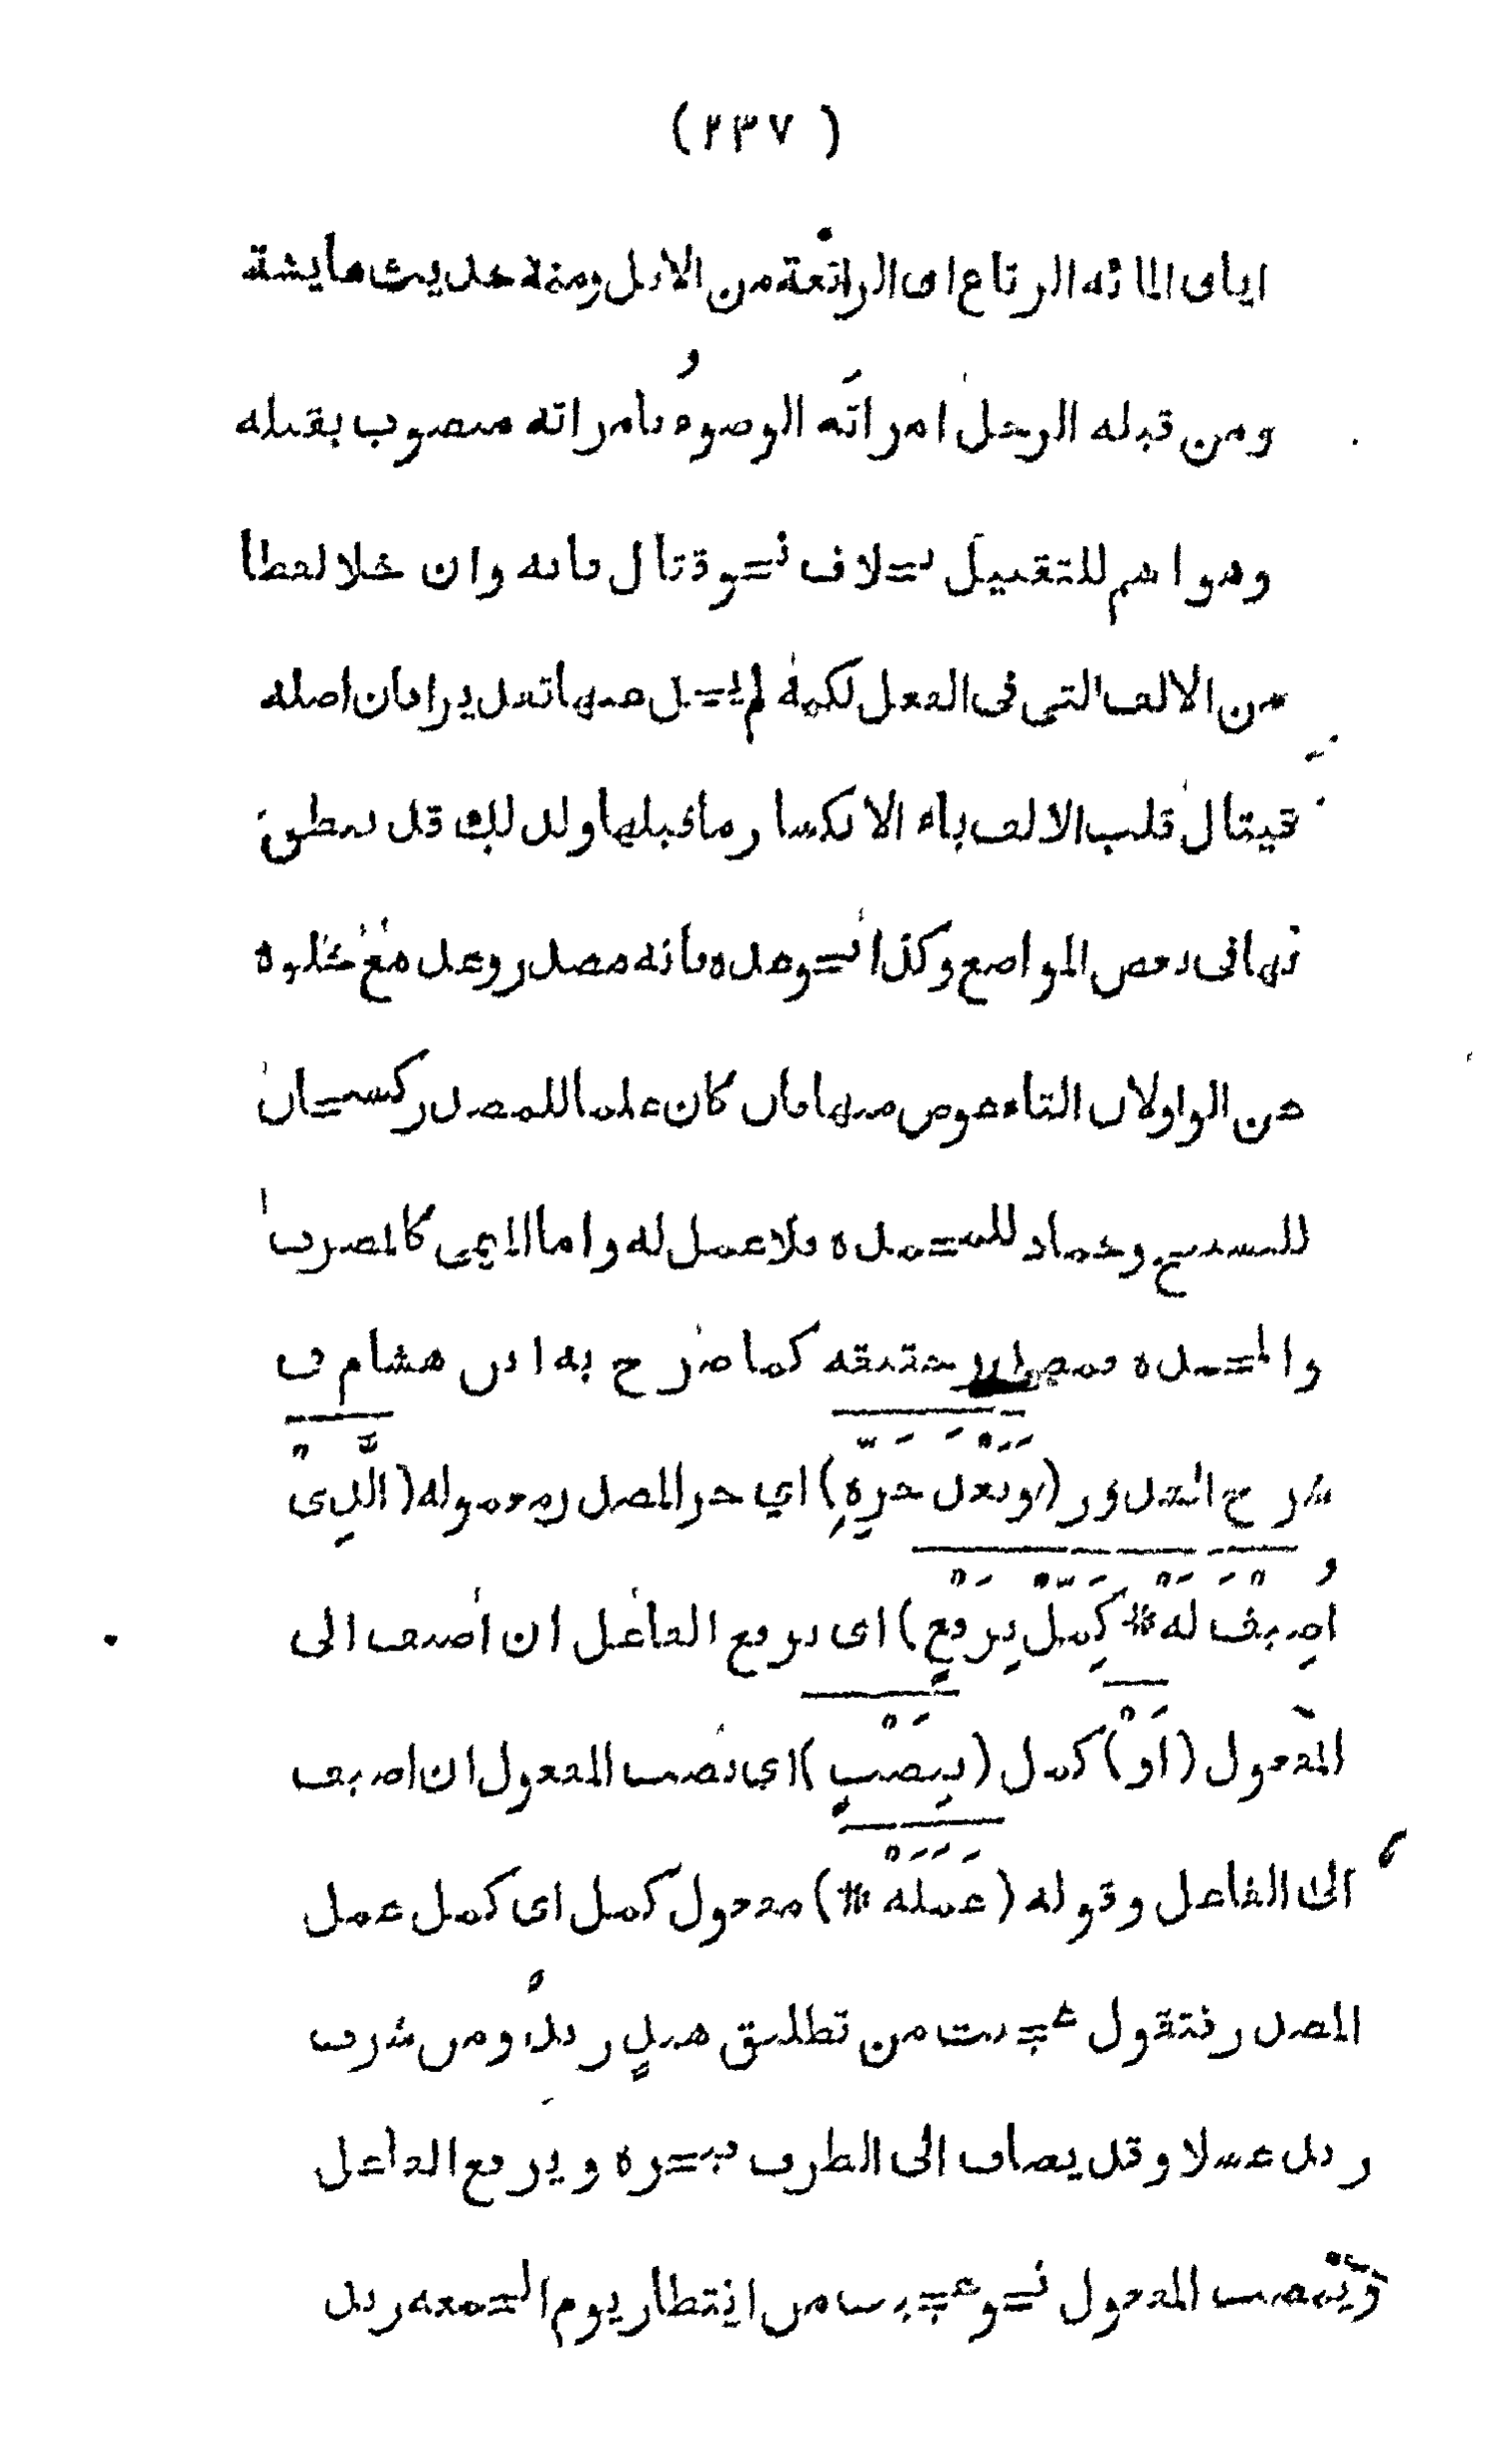 (٢٣٧)
اياى المائه الرتاع اى الراتعة من الابل ومنه حديث عايشة
ومن قبله الرجل امراتَه الوضوءُ فامراته منصوب بقبله
وهو اسم للتقبيل بخلاف نحو قتال فانه وان خلا لفظا
من الالف التى فى الفعل لكنه لم يخل منها تقديرا فان اصله
قيتال قلبت الالف ياء لانكسار ما قبلها ولذلك قد نطق
بها فى بعض المواضع وكذا نحو عدة فانه مصدر وعد مع خلوه
من الواو لان التاء عوض منها فان كان علما للمصدر كسبحان
للتسبيح وحماد للمحمدة فلا عمل له واما الميمى كالمضرب
والمحمدة فمصدر حقيقه كما صرح به ابن هشام فى
شرح الشذور (وَبَعْدَ جَرِّهِ) اي جر المصدر معموله (الَّذِىْ
اُضِيْفَ لَهْ * كَمِّلْ بِرَفْعٍ) اى برفع الفاعل ان اضيف الى
المفعول (اَوْ) كمل (بِنَصْبٍ) اي نصب المفعول ان اضيف
الى الفاعل وقوله (عَمَلَهْ *) مفعول كمل اى كمل عمل
المصدر فتقول عجبت من تطليق هندٍ زيدٌ ومن شرب
زيد عسلا وقد يضاف الى الظرف فيجره ويرفع الفاعل
وينصب المفعول نحو عجبت من انتظار يوم الجمعه زيد